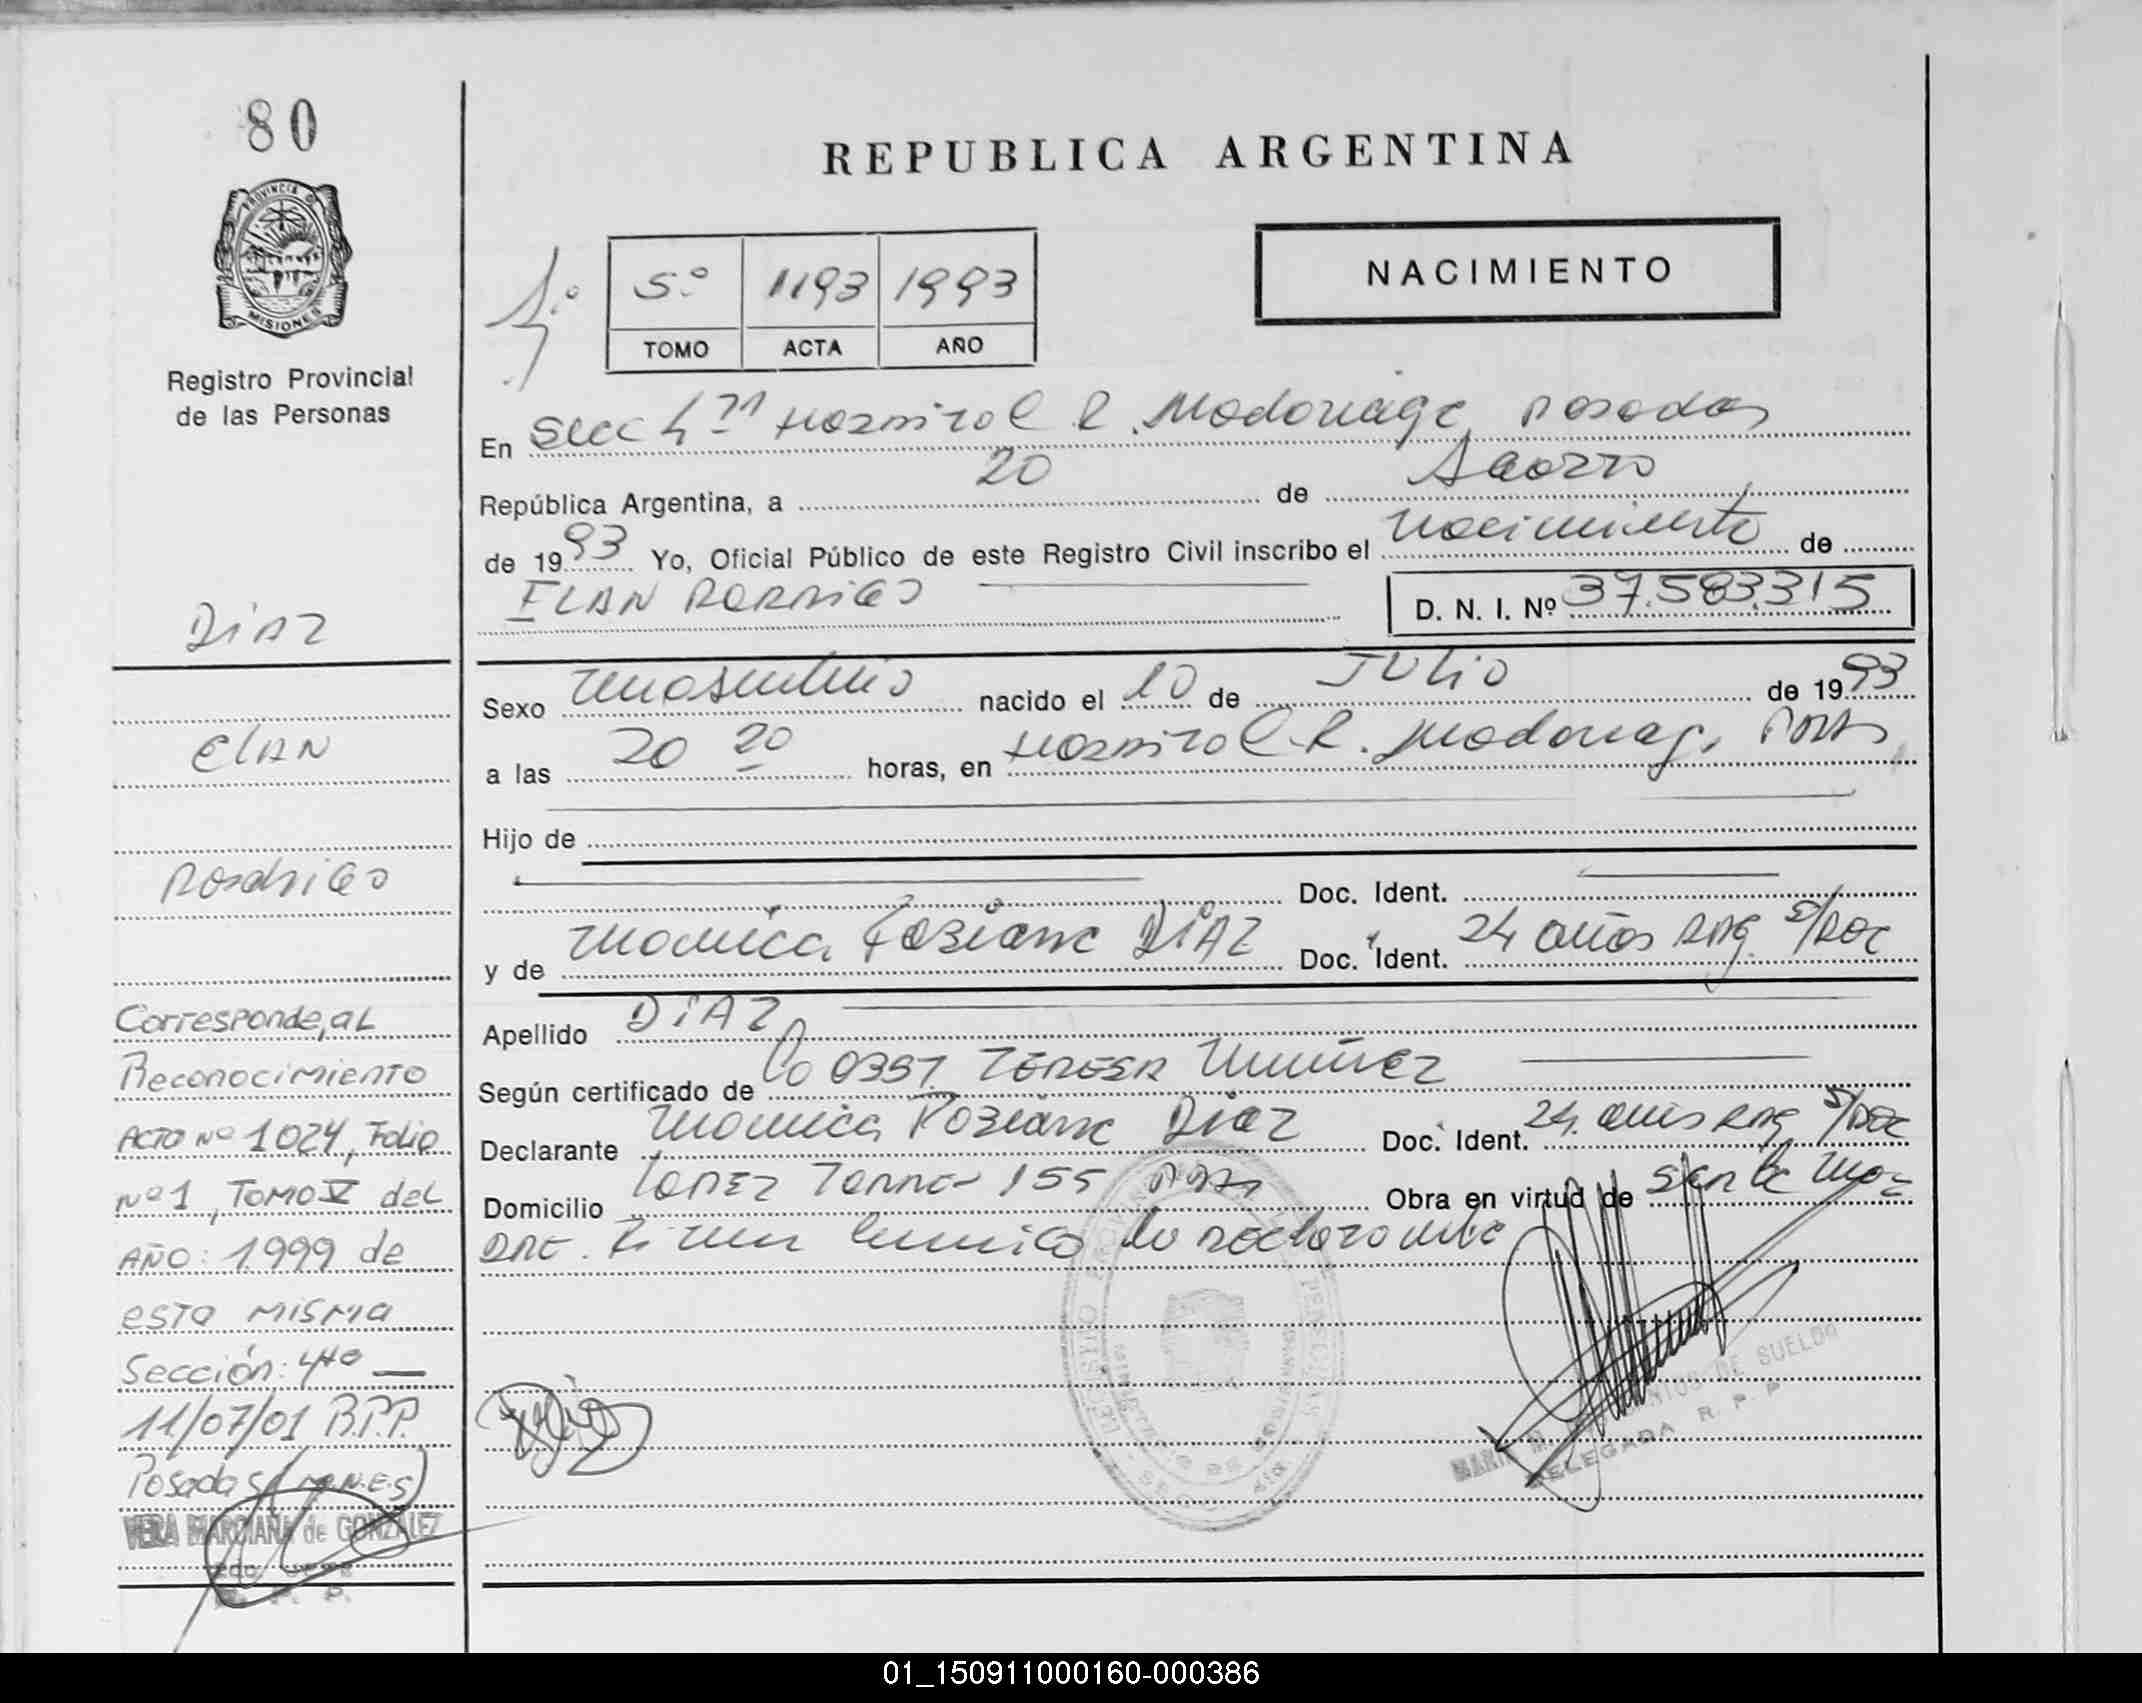 80
PROVINCIA DE
MISIONES
Registro Provincial
de las Personas
DiAZ
ElAN
Rodrigo
Corresponde, al
Reconocimiento
Acta Nº 1024, Folio
Nº 1, Tomo V del
AÑO: 1999 de
esta misma
Sección: 4ta —
11/07/01 B.P.P.
Posadas (MNES)
VERA MARCIANA de GONZALEZ
REPUBLICA ARGENTINA
5º 1193 1993
TOMO ACTA AÑO
NACIMIENTO
En Secc 4ta Hospital R. Madariaga, Posadas
República Argentina, a 20 de Agosto
de 1993 Yo, Oficial Público de este Registro Civil inscribo el nacimiento de
ELAN RODRIGO D. N. I. Nº 37.583.315
Sexo masculino nacido el 10 de JULIO de 1993
a las 20 20 horas, en Hospital R. Madariaga, Pdas
Hijo de
Doc. Ident.
y de Monica Fabiana DiAZ Doc. Ident. 24 años Arg. S/Doc
Apellido DiAZ
Según certificado de TERESA Muñez
Declarante Monica Fabiana Diaz Doc. Ident. 24 años Arg. S/Doc
Domicilio LOPEZ Torres 155 Pdas Obra en virtud de ser la ma-
dre. Firma la declarante
DE SUELDO
DELEGADA R. P. P.
01_150911000160-000386